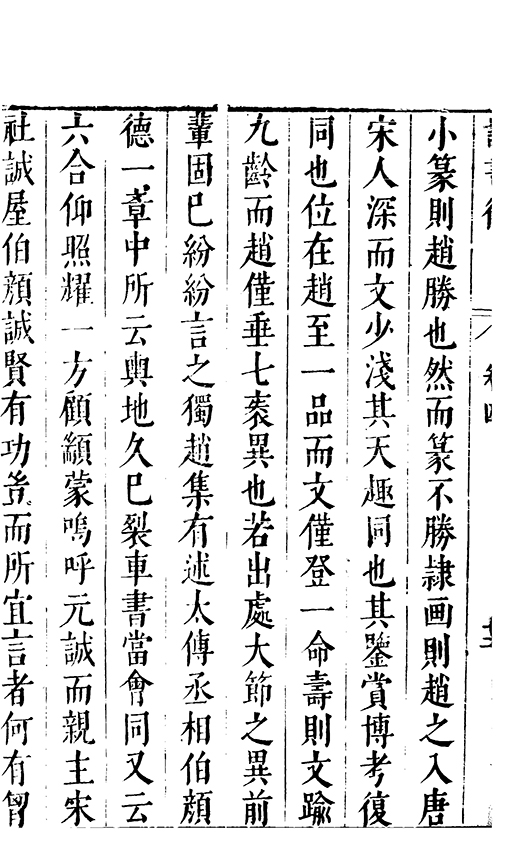 卷四
小篆則趙勝也然而篆不勝隷画則趙之入唐
宋人深而文少淺其天趣同也其鑒賞博考復
同也位在趙至一品而文僅登一命壽則文踰
九齡而趙僅垂七袠異也若出處大節之異前
輩固巳紛紛言之獨趙集有述太傅丞相伯顔
德一章中所云輿地久巳裂車書當會同又云
六合仰照耀一方顧顓蒙嗚呼元誠而親主宋
社誠屋伯顔誠賢有功豈而所宜言者何有曾